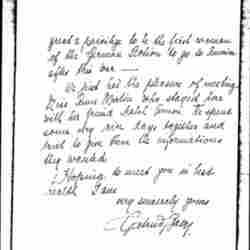 great a privilege to be the first woman
of the German Section to go to
after this war —
We just had the pleasure of meeting
Miss Anne Martin who stayed here
with her friend We spent
some very nice days together and
tried to give them the informations
they wanted.
Hoping to meet you in best
health I am
very sincerely yours
Gertrud Baer